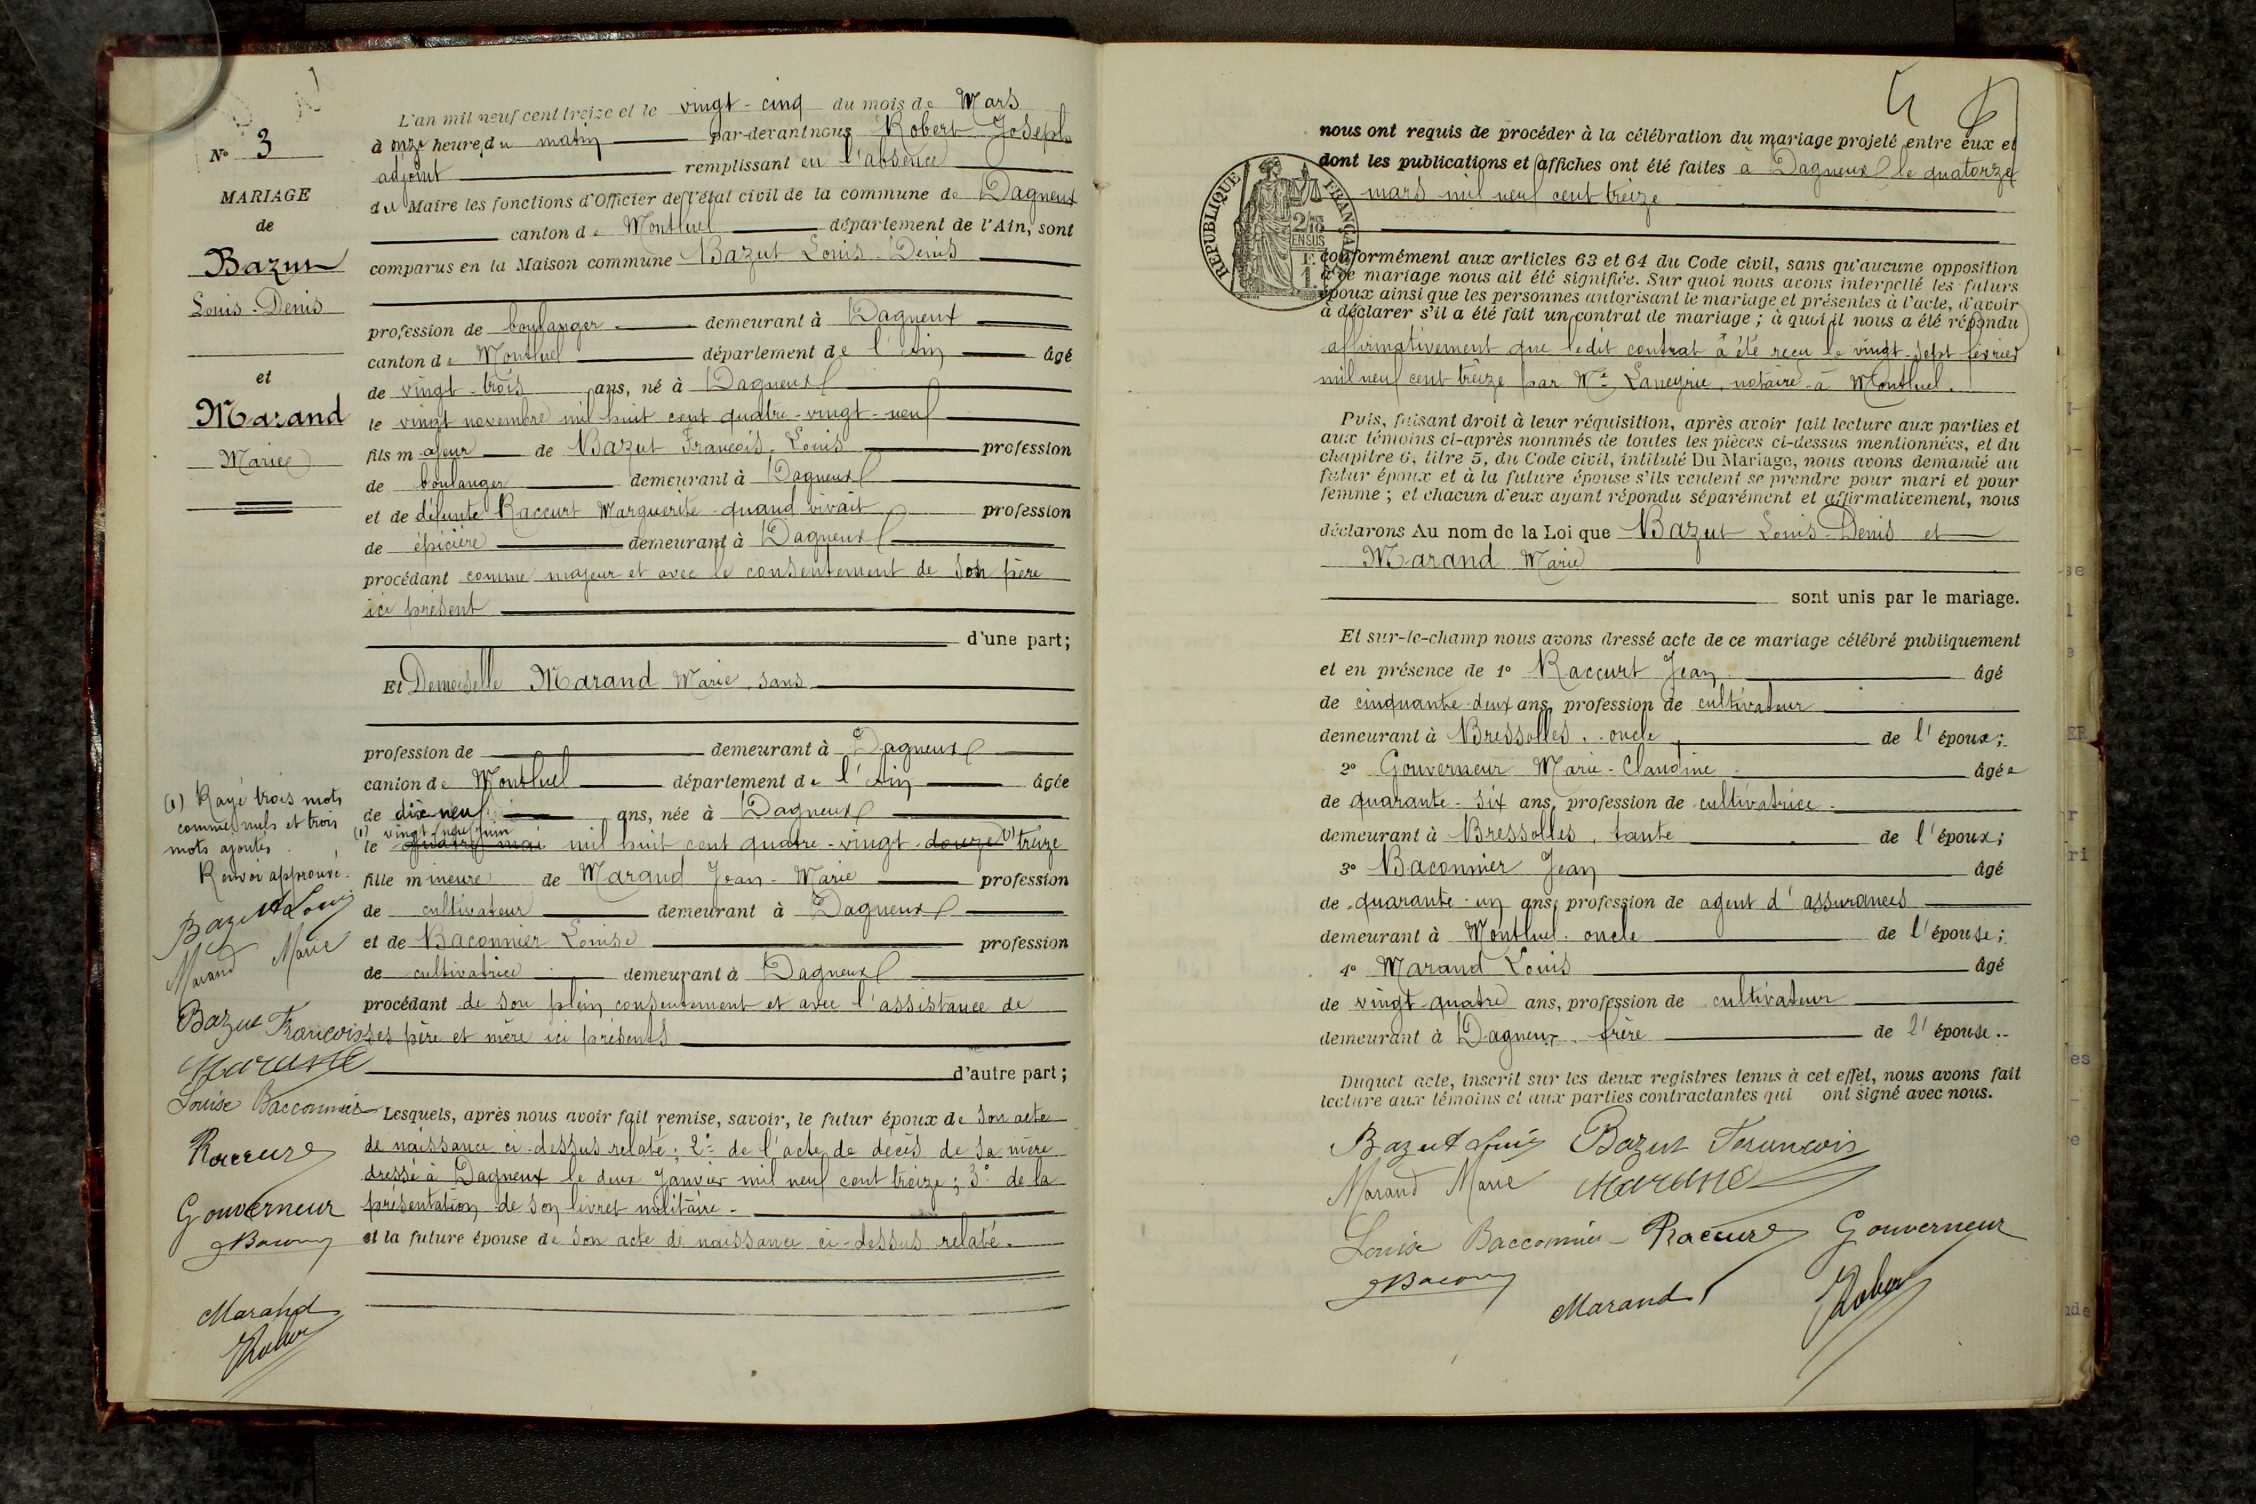 N° 3
MARIAGE
de
Bazut
Louis-Denis
et
Marand
Marie
(1) Rayé trois mots
comme nuls et trois
mots ajoutés.
Renvoi approuvé.
Bazut Louis
Marand Marie
Bazut François
Marand
Louise Bacconnier
Raccurt
Gouverneur
Marand
Robert
L'an mil neuf cent treize et le vingt-cinq du mois de Mars
à onze heure, du matin par-devant nous Robert Joseph
adjoint remplissant en l'absence
du Maire les fonctions d'Officier de l'état civil de la commune de Dagneux
canton de Montluel département de l'Ain, sont
comparus en la Maison commune Bazut Louis-Denis
profession de boulanger demeurant à Dagneux
canton de Montluel département de l'Ain âgé
de vingt-trois ans, né à Dagneux
le vingt novembre mil huit cent quatre-vingt-neuf
fils majeur de Bazut François-Louis profession
de boulanger demeurant à Dagneux
et de défunte Raccurt Marguerite quand vivait profession
de épicière demeurant à Dagneux
procédant comme majeur et avec le consentement de son père
ici présent
d'une part;
Et Demoiselle Marand Marie, sans
profession de demeurant à Dagneux
canton de Montluel département de l'Ain âgée
de dix-neuf ans, née à Dagneux
(1) vingt-neuf juin
le quatre mai mil huit cent quatre-vingt-douze (1) treize
fille mineure de Marand Jean-Marie profession
de cultivateur demeurant à Dagneux
et de Baconnier Louise profession
de cultivatrice demeurant à Dagneux
procédant de son plein consentement et avec l'assistance de
ses père et mère ici présents
d'autre part;
Lesquels, après nous avoir fait remise, savoir, le futur époux de son acte
de naissance ci-dessus relaté; 2° de l'acte de décès de sa mère
dressé à Dagneux le deux Janvier mil neuf cent treize; 3° de la
présentation de son livret militaire.
et la future épouse de son acte de naissance ci-dessus relaté.
nous ont requis de procéder à la célébration du mariage projeté entre eux et
dont les publications et affiches ont été faites à Dagneux le quatorze
mars mil neuf cent treize
RÉPUBLIQUE FRANÇAISE
2/10
EN SUS
1 F.
conformément aux articles 63 et 64 du Code civil, sans qu'aucune opposition
à ce mariage nous ait été signifiée. Sur quoi nous avons interpellé les futurs
époux ainsi que les personnes autorisant le mariage et présentes à l'acte, d'avoir
à déclarer s'il a été fait un contrat de mariage; à quoi il nous a été répondu
affirmativement que ledit contrat a été reçu le vingt-sept février
mil neuf cent treize par Me Laneyrie, notaire à Montluel.
Puis, faisant droit à leur réquisition, après avoir fait lecture aux parties et
aux témoins ci-après nommés de toutes les pièces ci-dessus mentionnées, et du
chapitre 6, titre 5, du Code civil, intitulé Du Mariage, nous avons demandé au
futur époux et à la future épouse s'ils veulent se prendre pour mari et pour
femme; et chacun d'eux ayant répondu séparément et affirmativement, nous
déclarons Au nom de la Loi que Bazut Louis-Denis et
Marand Marie
sont unis par le mariage.
Et sur-le-champ nous avons dressé acte de ce mariage célébré publiquement
et en présence de 1° Raccurt Jean âgé
de cinquante-deux ans, profession de cultivateur
demeurant à Bressolles, oncle de l'époux;
2° Gouverneur Marie-Claudine âgée
de quarante-six ans, profession de cultivatrice
demeurant à Bressolles, tante de l'époux;
3° Baconnier Jean âgé
de quarante-un ans, profession de agent d'assurances
demeurant à Montluel, oncle de l'épouse;
4° Marand Louis âgé
de vingt-quatre ans, profession de cultivateur
demeurant à Dagneux, frère de l'épouse.
Duquel acte, inscrit sur les deux registres tenus à cet effet, nous avons fait
lecture aux témoins et aux parties contractantes qui ont signé avec nous.
Bazut Louis Bazut François
Marand Marie Marand
Louise Bacconnier Raccurt Gouverneur
Marand Robert